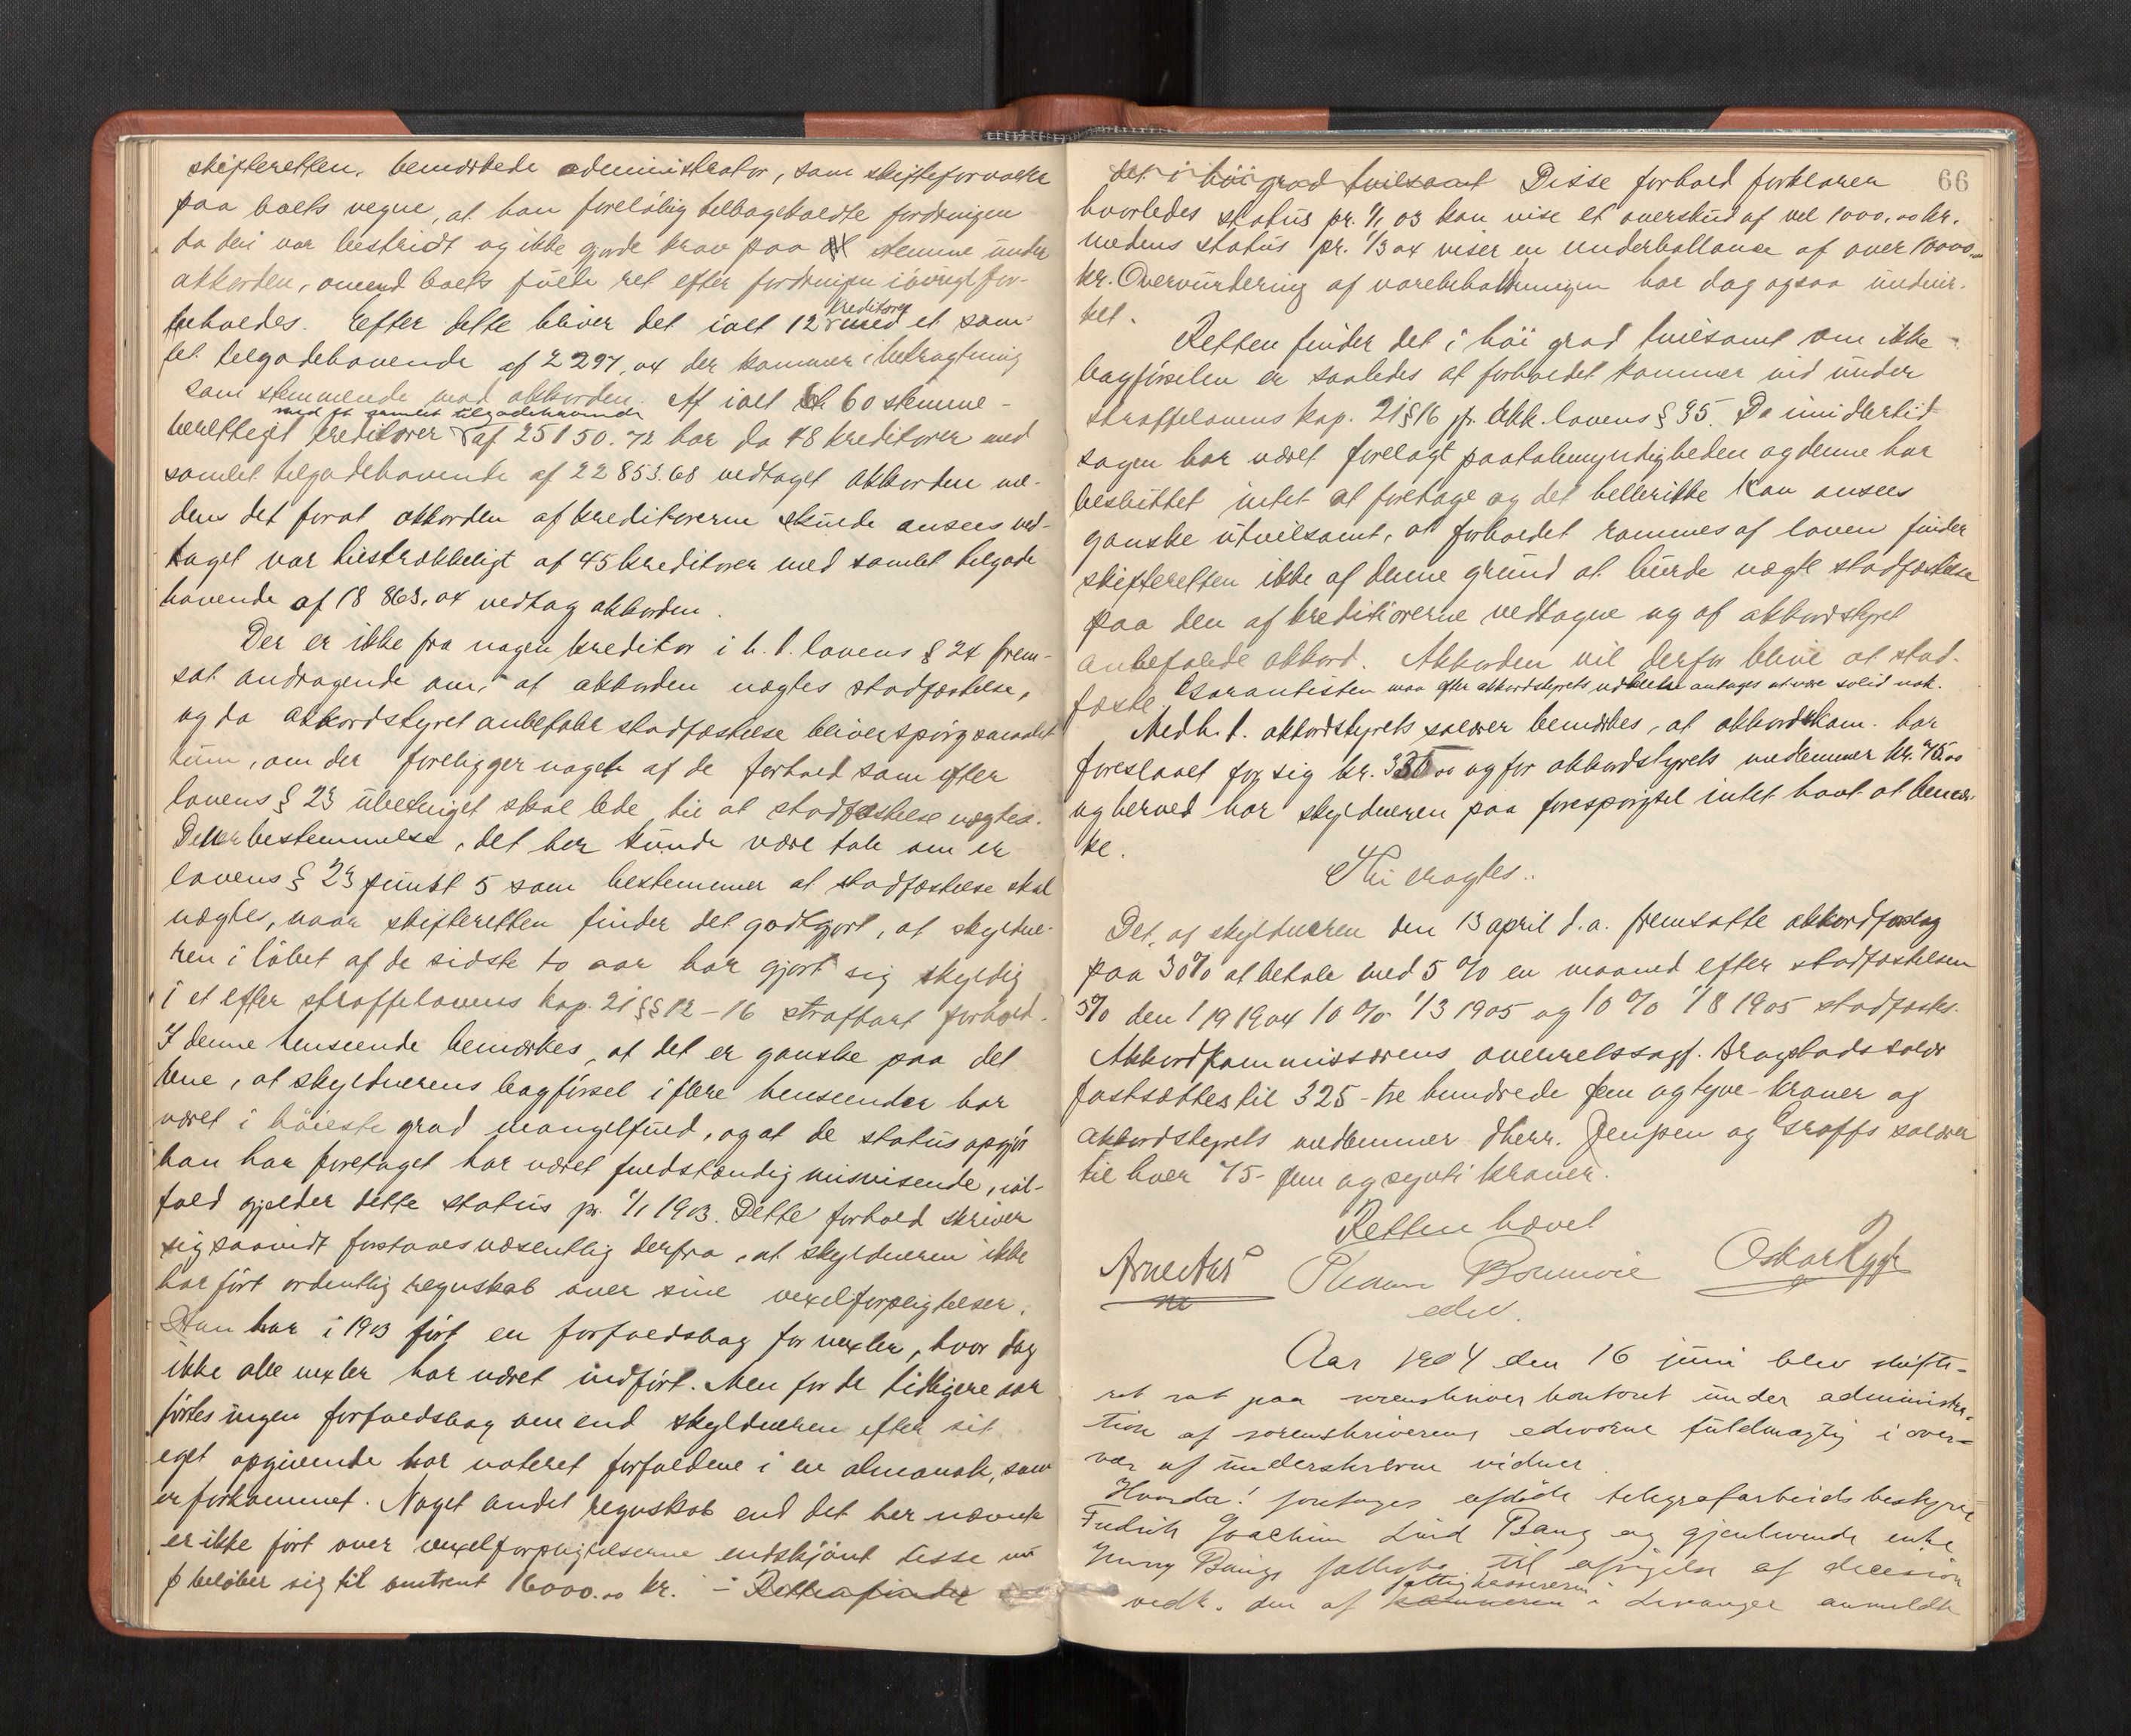 skifteretten, bemærkede administrator, som skifteforvalter
paa boets vegne, at han foreløbig tilbageholdte fordringen
da den var bestridt og ikke gjorde krav paa at stemme under
akkorden, omend boets fulde ret efter fordringen iøvrigt for-
beholdes. Efter dette bliver det ialt 12 kreditorer med et sam-
let tilgodehavende af 2297,04 der kommer i betragtning
som stemmende mod akkorden. Af ialt 60 stemme-
berettiget kreditorer med et samlet tilgodehavende af 25150.72 har da 48 kreditorer med
samlet tilgodehavende af 22853.68 vedtaget akkorden me-
dens det forat akkorden af kreditorerne skulde ansees ved-
taget var tilstrækkeligt at 45 kreditorer med samlet tilgode
havende af 18 863,04 vedtog akkorden.
Der er ikke fra nogen kreditor i h. t. lovens § 24 frem-
sat andragende om, at akkorden nægtes stadfæstelse,
og da akkordstyret anbefaler stadfæstelse bliver spørgsmaalet
kun, om der foreligger noget af de forhold som efter
lovens § 23 ubetinget skal lede til at stadfæstelse nægtes.
Den bestemmelse, det her kunde være tale om er
lovens § 23 punkt 5 som bestemmer at stadfæstelse skal
nægtes, naar skifteretten finder det godtgjort, at skyldne-
ren i løbet af de sidste to aar har gjort sig skyldig
i et efter straffelovens kap. 21 §§ 12-16 strafbart forhold.
I denne henseende bemærkes, at det er ganske paa det
rene, at skyldnerens bogførsel i flere henseender har
været i høieste grad mangelfuld, og at de statusopgjør
han har foretaget har været fuldstændig misvisende, ial-
fald gjelder dette status pr. 1/1 1903. Dette forhold skriver
sig saavidt forstaaes væsentlig derfra, at skyldneren ikke
har ført ordentlig regnskab over sine vexelforpligtelser.
Han har i 1903 ført en forfaldsbog for vexler, hvor dog
ikke alle vexler har været indført. Men for de tidligere aar
førtes ingen forfaldsbog om end skyldneren efter sit
eget opgivende har noteret forfaldene i en almanak, som
er forkommet. Noget andet regnskab end det her nævnte
er ikke ført over vexelforpligtelserne endskjønt disse nu
beløber sig til omtrent 16000.00 kr. - Retten finder
det i høi grad tvilsomt Disse forhold forklarer
66
hvorledes status pr. 1/1 03 kan vise et overskud af vel 1000,00 kr.
medens status pr. 1/3 04 viser en underballance af over 10000,00
kr. Overvurdering af varebeholdningen har dog ogsaa indvir-
ket.
Retten finder det i høi grad tvilsomt om ikke
bogførselen er saaledes at forholdet kommer ind under
straffelovens kap. 21 § 16 jfr. akk. lovens § 35. Da imidlertid
sagen har været forelagt paatalemyndigheden og denne har
besluttet intet at foretage og det heller ikke kan ansees
ganske utvilsomt, at forholdet rammes af loven finder
skifteretten ikke af denne grund at burde nægte stadfæstelse
paa den af kreditorerne vedtagne og af akkordstyret
anbefalede akkord. Akkorden vil derfor blive at stad-
fæste. Garantisten maa efter akkordstyrets udtalelse antages at være solid nok.
Med h. t. akkordstyrets salærer bemærkes, at akkordkom. har
foreslaaet for sig kr. 00 og for akkordstyrets medlemmer kr. 75.00
og herved har skyldneren paa forespørgsel intet havt at bemær-
ke.
Thi eragtes:
Det af skyldneren den 13 april d.a. fremsatte akkordforslag
paa 30% at betale med 5% en maaned efter stadfæstelsen
5% den 1/9 1904 10% 1/3 1905 og 10% 1/8 1905 stadfæstes.
Akkordkommissærens overretssagf. Bragstads salær
fastsættes til 325 - tre hundrede fem og tyve - kroner og
akkordstyrets medlemmer dHerr. Jenssen og Graffs salærer
til hver 75 - fem og sytti kroner.
Retten hævet
Oskar Rygh
edsv.
Aar 1904 den 16 juni blev skifte-
ret sat paa sorenskriverkontoret under administra-
tion af sorenskriverens edsvorne fuldmægtig i over-
vær af underskrevne vidner.
Hvorda! foretoges afdøde telegrafarbeidsbestyrer
Fredrik Joachim Lund Bang og gjenlevende enke
Jenny Bangs fællesbo til afsigelse af decision
vedk. den af fattigkassereren i Levanger anmeldte